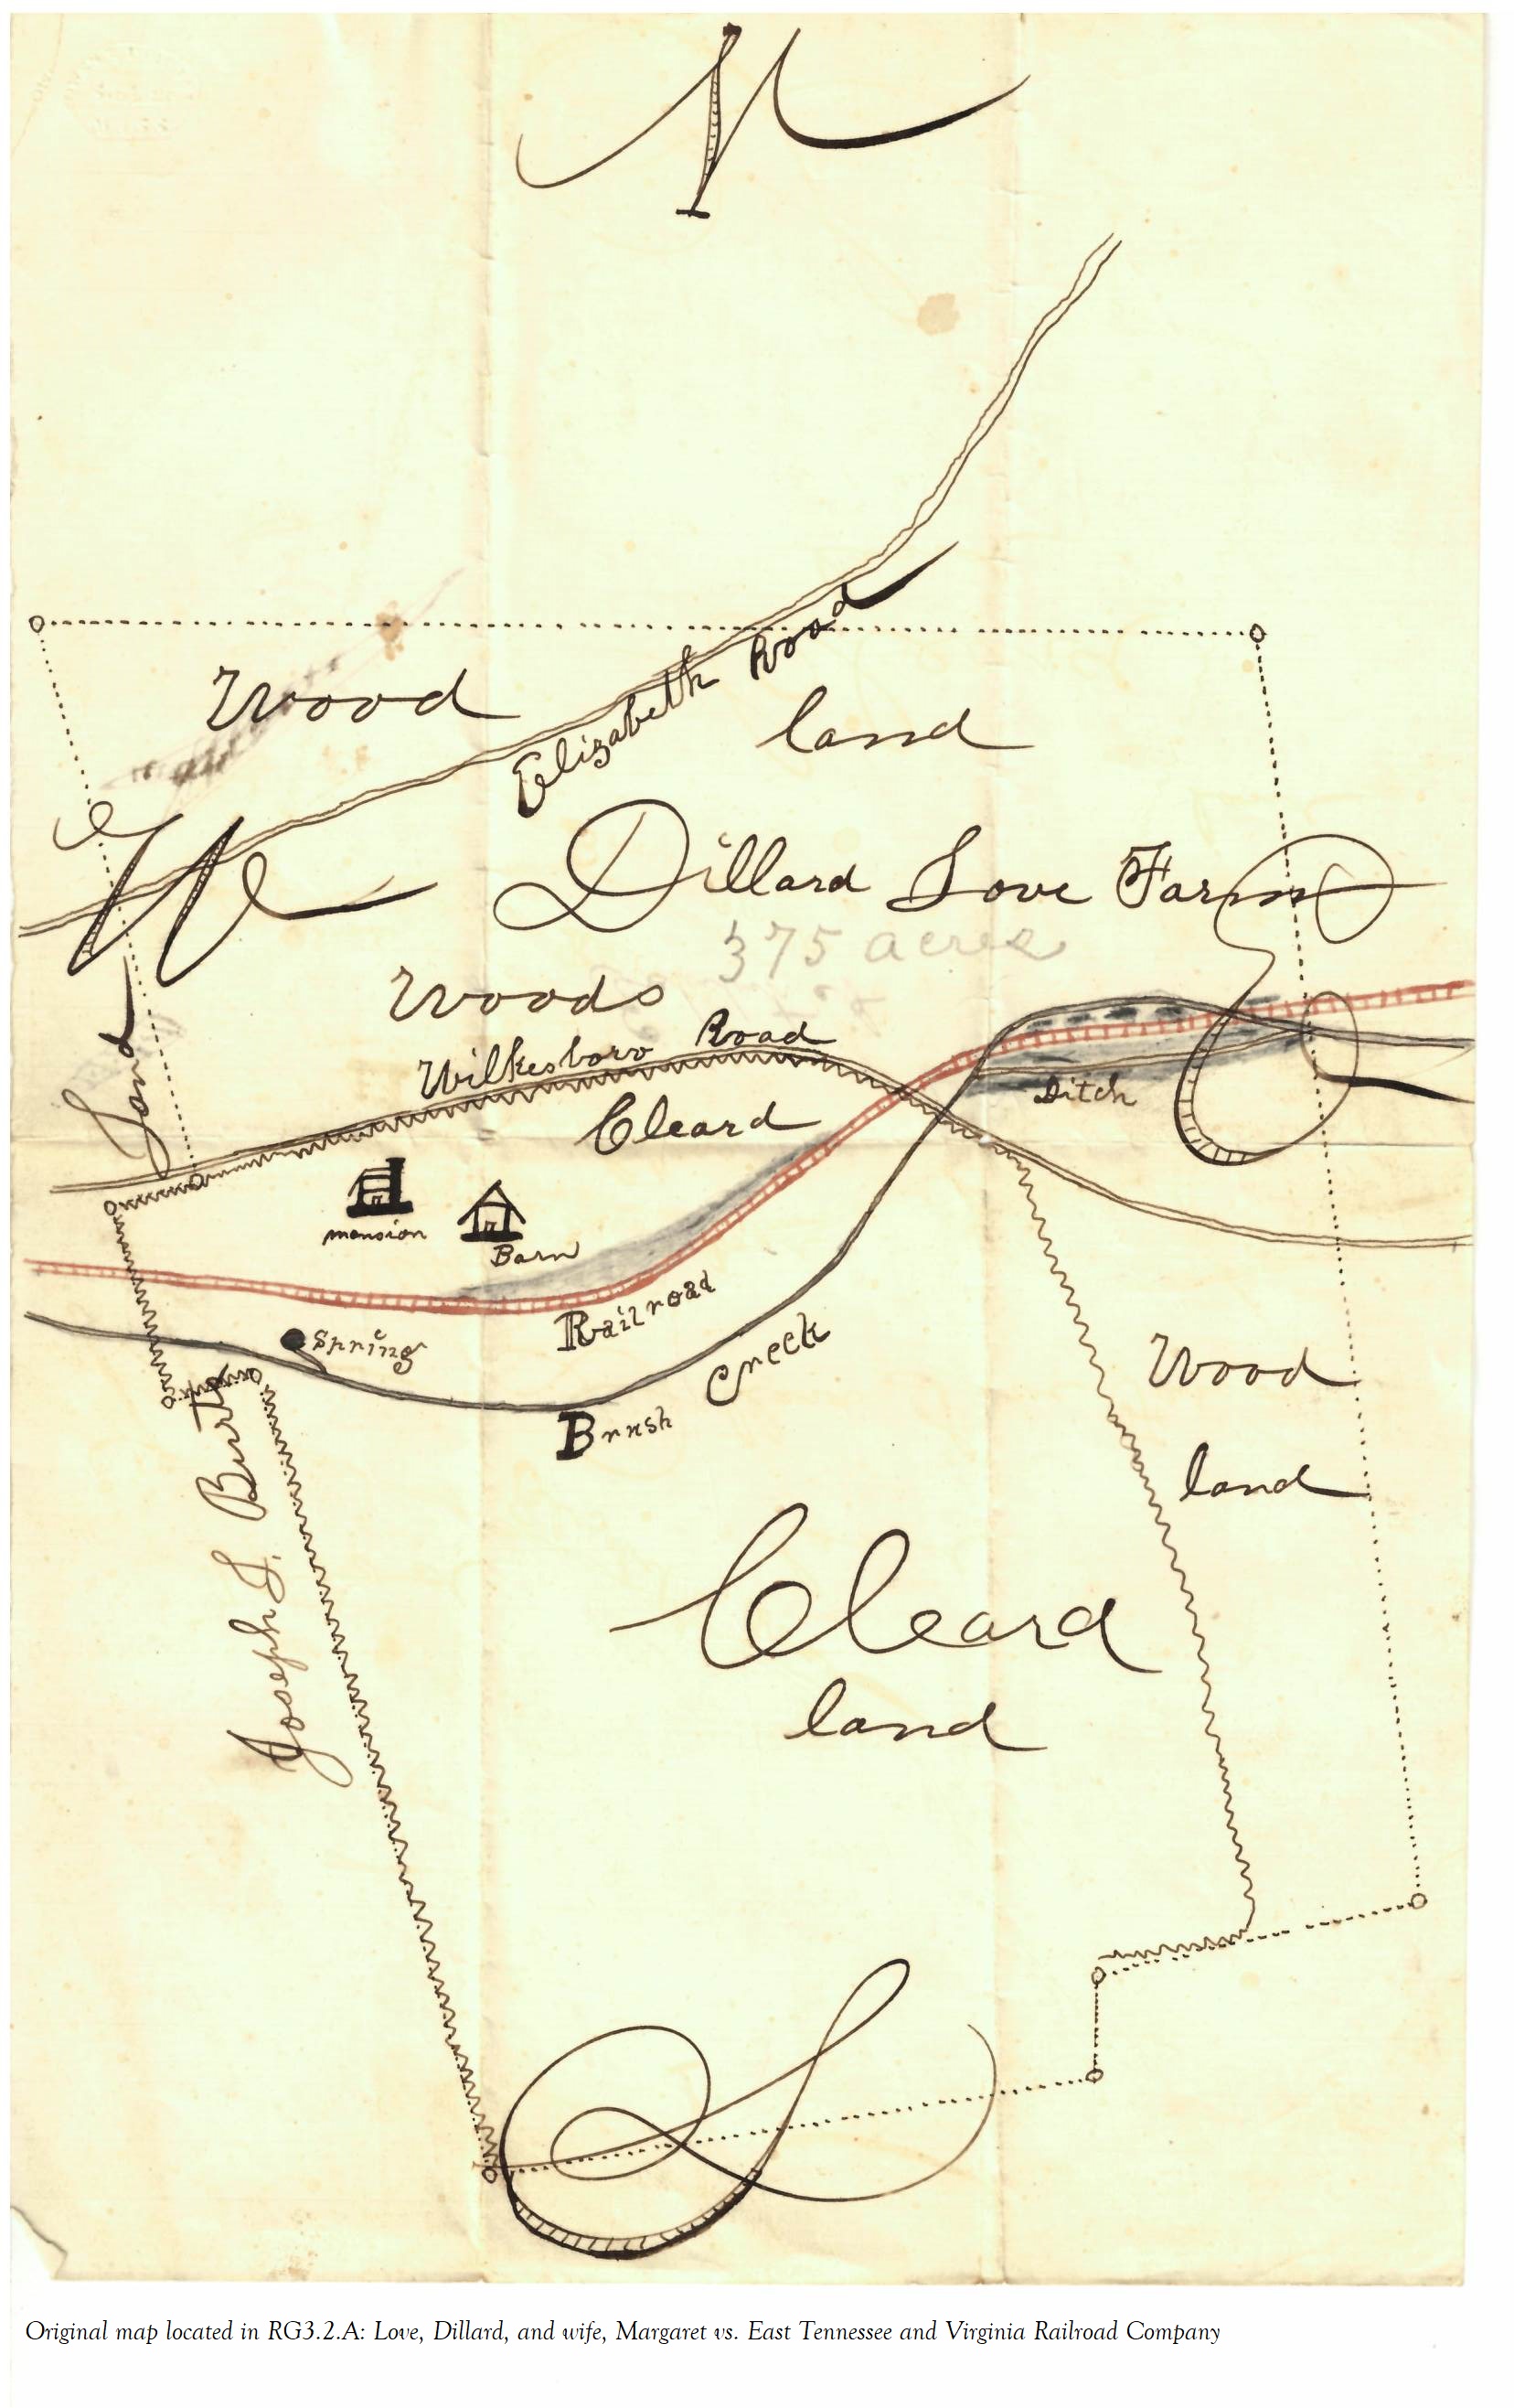 N
Wood
Elizabeth Road
land
W
Dillard Love Farm
E
375 acres
Woods
Wilkesboro Road
Cleard
Ditch
mansion
Barn
Railroad
Spring
Brush Creek
Joseph J. Burts Land
Wood
land
Cleard
land
S
Original map located in RG3.2.A: Love, Dillard, and wife, Margaret vs. East Tennessee and Virginia Railroad Company